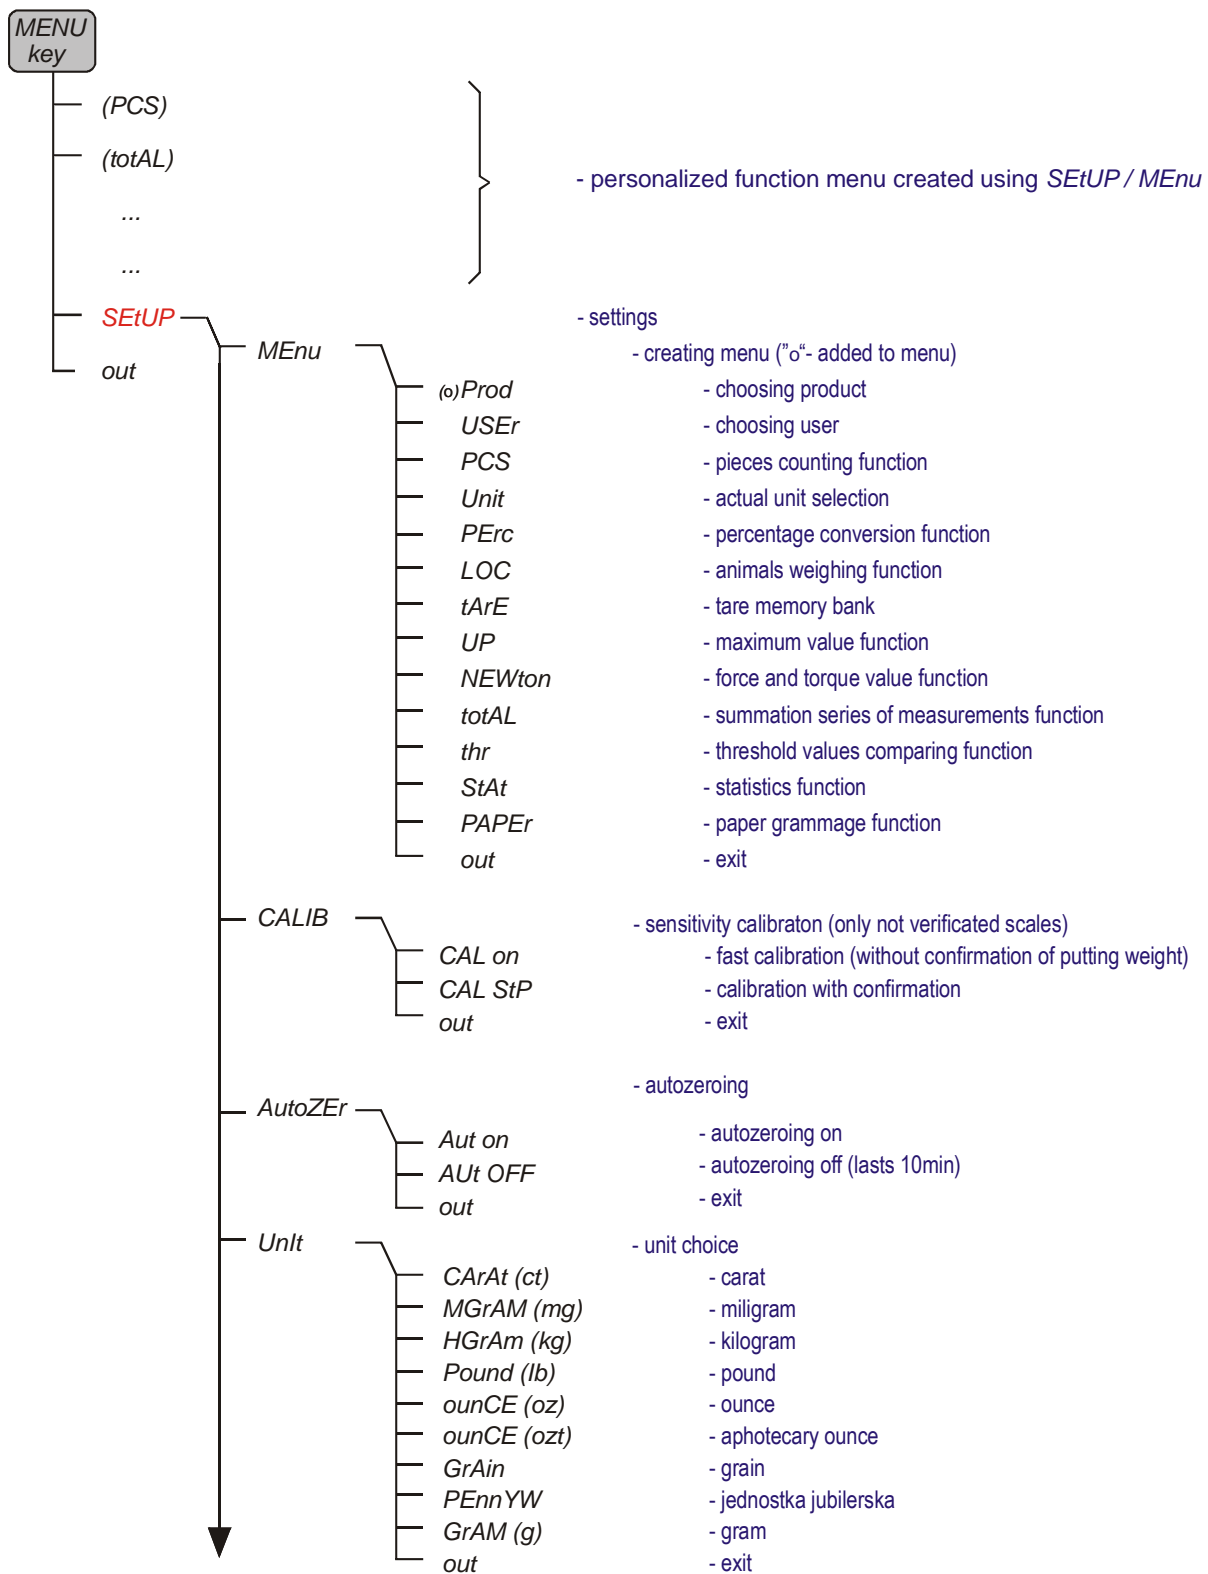 MENU
key
(PCS)
(totAL)
...
...
- personalized function menu created using SEtUP / MEnu
SEtUP - settings
MEnu - creating menu ("o"- added to menu)
out
(o)Prod - choosing product
USEr - choosing user
PCS - pieces counting function
Unit - actual unit selection
PErc - percentage conversion function
LOC - animals weighing function
tArE - tare memory bank
UP - maximum value function
NEWton - force and torque value function
totAL - summation series of measurements function
thr - threshold values comparing function
StAt - statistics function
PAPEr - paper grammage function
out - exit
CALIB - sensitivity calibraton (only not verificated scales)
CAL on - fast calibration (without confirmation of putting weight)
CAL StP - calibration with confirmation
out - exit
AutoZEr - autozeroing
Aut on - autozeroing on
AUt OFF - autozeroing off (lasts 10min)
out - exit
UnIt - unit choice
CArAt (ct) - carat
MGrAM (mg) - miligram
HGrAm (kg) - kilogram
Pound (lb) - pound
ounCE (oz) - ounce
ounCE (ozt) - aphotecary ounce
GrAin - grain
PEnnYW - jednostka jubilerska
GrAM (g) - gram
out - exit